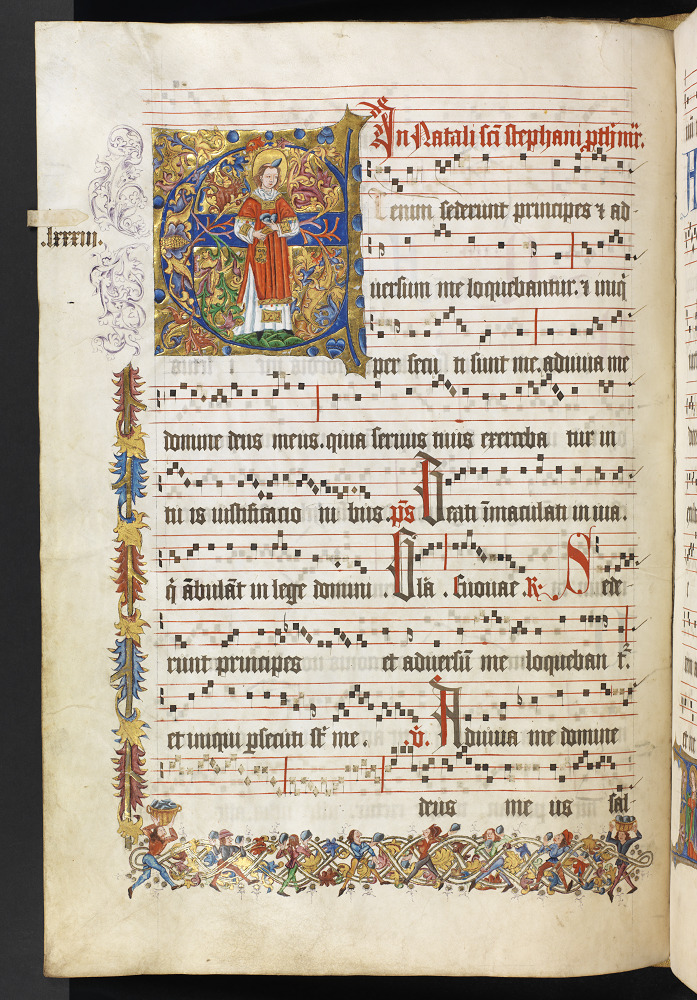 In Natali sci stephani pthmr.
.lxxxiii.
Etenim sederunt principes ⁊ ad
uersum me loquebantur. ⁊ iniq
per secu ti sunt me. adiuua me
domine deus meus. quia seruus tuus exerceba tur in
tu is iustificacio ni bus. ps Beati īmaculati in uia.
q̄ ābulāt in lege domini . Glā . Euouae . R Sede
runt principes et aduersū me loqueban t̄.
et iniqui ꝑsecuti st̄ me. . V. Adiuua me domine
deus me us sal